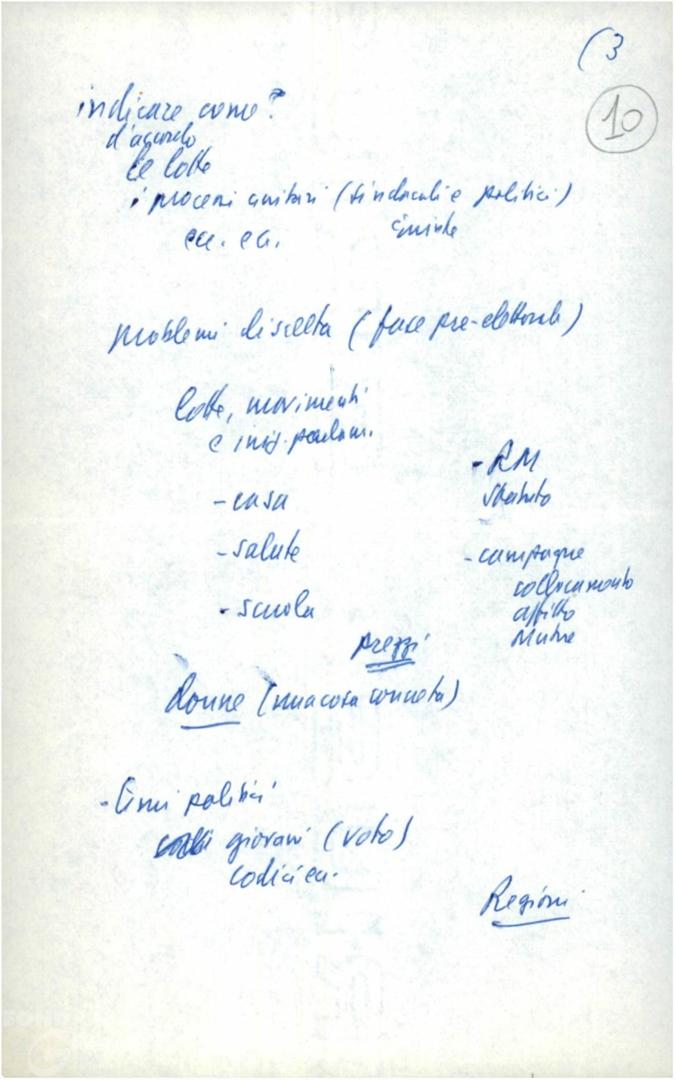 (3
10
indicare come?
d'accordo
le lotte
i processi unitari (sindacali e politici)
ecc. ecc.
problemi di scelta (fase pre-elettorale)
lotte, movimenti
e iniz. parlam.
- RM
Statuto
- casa
- salute
- campagne
collocamento
affitto
Mutue
- scuola
prezzi
Donne (una cosa concreta)
- Temi politici
giovani (voto)
codici ecc.
Regioni